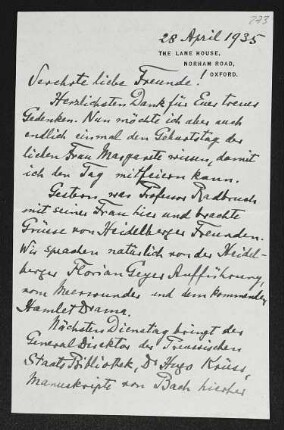 773
28 April 1935
THE LANE HOUSE,
NORHAM ROAD,
OXFORD.
Verehrte liebe Freunde!
Herzlichsten Dank für Euer treues
Gedenken. Nun möchte ich aber auch
endlich einmal den Geburtstag der
lieben Frau Margarete wissen, damit
ich den Tag mitfeiern kann.
Gestern war Professor Radbruch
mit seiner Frau hier und brachte
Grüsse von Heidelberger Freunden.
Wir sprachen natürlich von der Heidel-
berger Florian Geyer Aufführung,
vom Meerwunder und dem kommenden
Hamlet Drama.
Nächsten Dienstag bringt der
General Direktor der Preussischen
Staats Bibliothek, Dr Hugo Krüss,
Manuskripte von Bach hierher